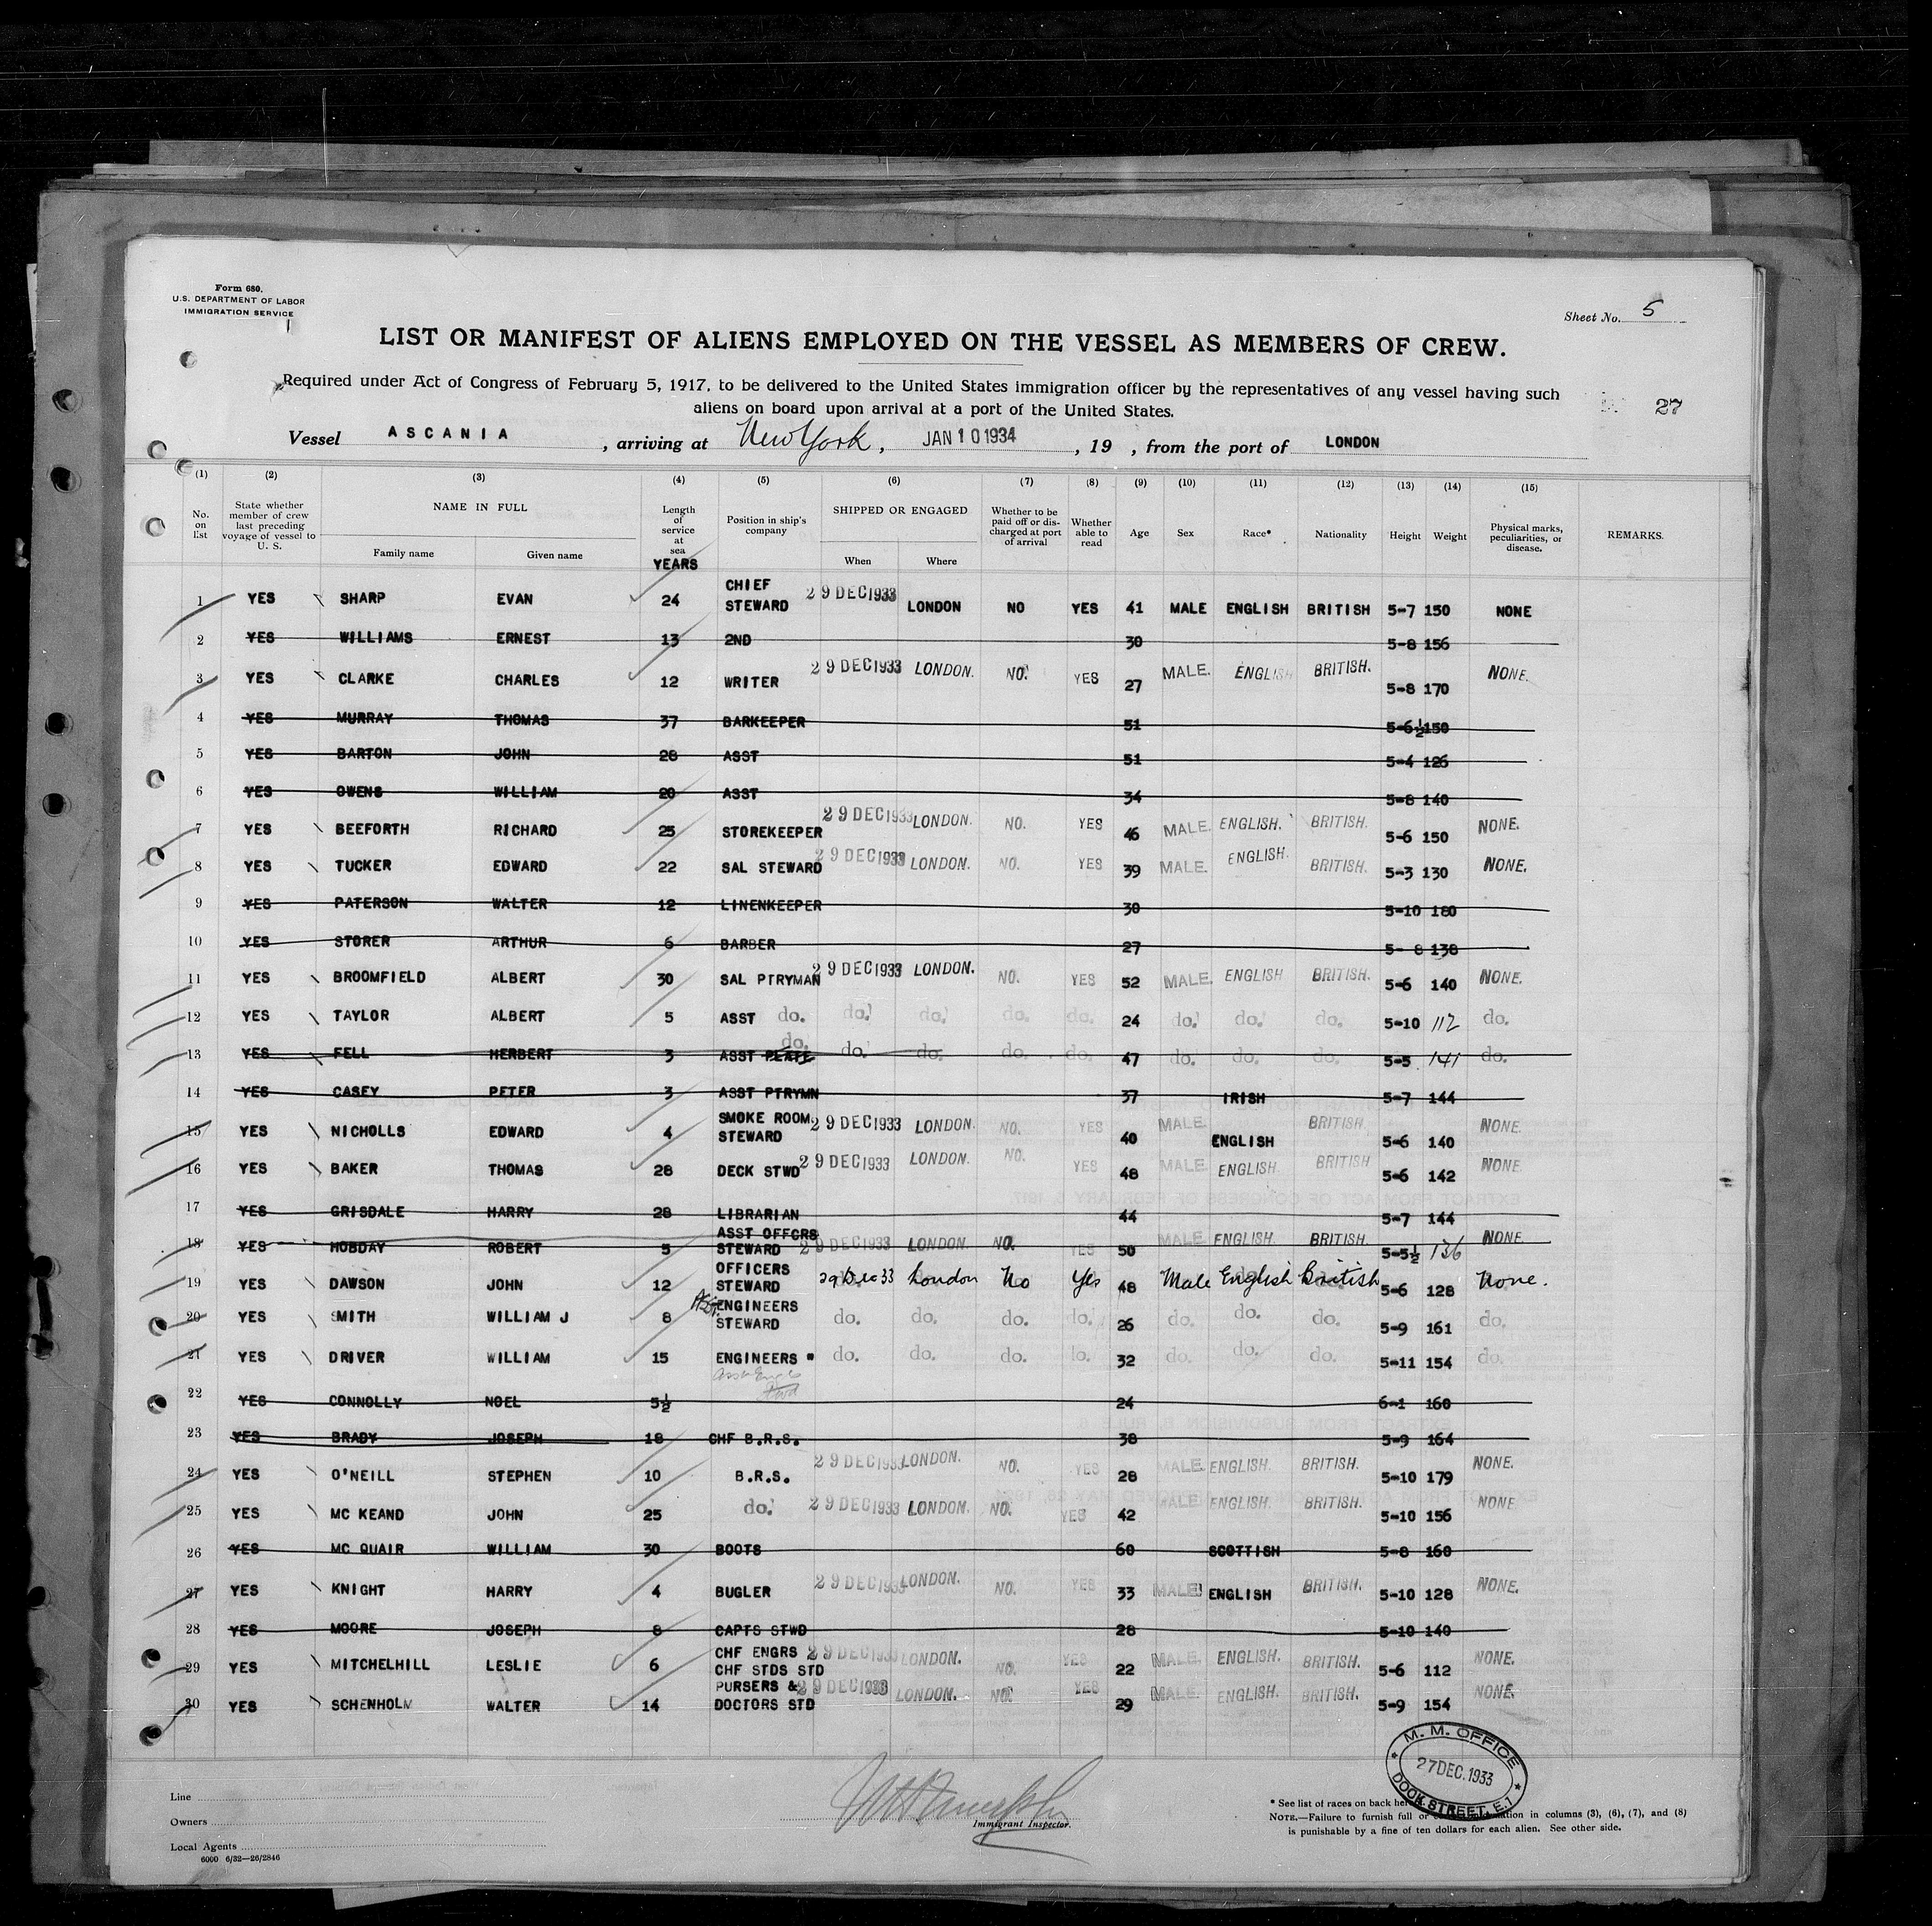 Form 680.
U.S. DEPARTMENT OF LABOR
IMMIGRATION SERVICE
Sheet No. 5
LIST OR MANIFEST OF ALIENS EMPLOYED ON THE VESSEL AS MEMBERS OF CREW.
Required under Act of Congress of February 5, 1917, to be delivered to the United States immigration officer by the representatives of any vessel having such
aliens on board upon arrival at a port of the United States.
27
Vessel ASCANIA , arriving at New York , JAN 10 1934 , 19 , from the port of LONDON
(1) (2) (3) (4) (5) (6) (7) (8) (9) (10) (11) (12) (13) (14) (15)
No. on list State whether member of crew last preceding voyage of vessel to U. S. NAME IN FULL Family name Given name Length of service at sea YEARS Position in ship's company SHIPPED OR ENGAGED When Where Whether to be paid off or discharged at port of arrival Whether able to read Age Sex Race* Nationality Height Weight Physical marks, peculiarities, or disease. REMARKS.
1 YES SHARP EVAN 24 CHIEF STEWARD 29 DEC 1933 LONDON NO YES 41 MALE ENGLISH BRITISH 5-7 150 NONE
2 YES WILLIAMS ERNEST 13 2ND 30 5-8 156
3 YES CLARKE CHARLES 12 WRITER 29 DEC 1933 LONDON. NO. YES 27 MALE. ENGLISH BRITISH. 5-8 170 NONE.
4 YES MURRAY THOMAS 37 BARKEEPER 51 5-6½ 150
5 YES BARTON JOHN 28 ASST 51 5-4 126
6 YES OWENS WILLIAM 20 ASST 34 5-8 140
7 YES BEEFORTH RICHARD 25 STOREKEEPER 29 DEC 1933 LONDON. NO. YES 46 MALE. ENGLISH. BRITISH. 5-6 150 NONE.
8 YES TUCKER EDWARD 22 SAL STEWARD 29 DEC 1933 LONDON. NO. YES 39 MALE. ENGLISH. BRITISH. 5-3 130 NONE.
9 YES PATERSON WALTER 12 LINENKEEPER 30 5-10 180
10 YES STORER ARTHUR 6 BARBER 27 5-8 138
11 YES BROOMFIELD ALBERT 30 SAL PTRYMAN 29 DEC 1933 LONDON. NO. YES 52 MALE. ENGLISH BRITISH. 5-6 140 NONE.
12 YES TAYLOR ALBERT 5 ASST do. do. do. do. do. 24 do. do. do. 5-10 112 do.
13 YES FELL HERBERT 3 ASST PLATE do. do. do. do. do. 47 do. do. do. 5-5 141 do.
14 YES CASEY PETER 3 ASST PTRYMN 37 IRISH 5-7 144
15 YES NICHOLLS EDWARD 4 SMOKE ROOM STEWARD 29 DEC 1933 LONDON. NO. YES 40 MALE. ENGLISH BRITISH. 5-6 140 NONE.
16 YES BAKER THOMAS 28 DECK STWD 29 DEC 1933 LONDON. NO. YES 48 MALE. ENGLISH. BRITISH 5-6 142 NONE.
17 YES GRISDALE HARRY 28 LIBRARIAN 44 5-7 144
18 YES HOBDAY ROBERT 5 ASST OFFCRS STEWARD 29 DEC 1933 LONDON. NO. YES 50 MALE. ENGLISH. BRITISH. 5-5½ 136 NONE.
19 YES DAWSON JOHN 12 OFFICERS STEWARD 29 Dec 33 London No Yes 48 Male English British 5-6 128 None.
20 YES SMITH WILLIAM J 8 Asst. ENGINEERS STEWARD do. do. do. do. 26 do. do. do. 5-9 161 do.
21 YES DRIVER WILLIAM 15 ENGINEERS " do. do. do. do. 32 do. do. do. 5-11 154 do.
22 YES CONNOLLY NOEL 5½ 24 6-1 160
23 YES BRADY JOSEPH 18 CHF B.R.S. 38 5-9 164
24 YES O'NEILL STEPHEN 10 B.R.S. 29 DEC 1933 LONDON. NO. YES 28 MALE. ENGLISH. BRITISH. 5-10 179 NONE.
25 YES MC KEAND JOHN 25 do. 29 DEC 1933 LONDON. NO. YES 42 MALE. ENGLISH. BRITISH. 5-10 156 NONE
26 YES MC QUAIR WILLIAM 30 BOOTS 60 SCOTTISH 5-8 160
27 YES KNIGHT HARRY 4 BUGLER 29 DEC 1933 LONDON. NO. YES 33 MALE ENGLISH BRITISH. 5-10 128 NONE.
28 YES MOORE JOSEPH 8 CAPTS STWD 28 5-10 140
29 YES MITCHELHILL LESLIE 6 CHF ENGRS CHF STDS STD 29 DEC 1933 LONDON. NO. YES 22 MALE. ENGLISH. BRITISH. 5-6 112 NONE.
30 YES SCHENHOLM WALTER 14 PURSERS & DOCTORS STD 29 DEC 1933 LONDON. NO. YES 29 MALE. ENGLISH. BRITISH. 5-9 154 NONE.
M. M. OFFICE
27 DEC. 1933
DOCK STREET, E.1
Line
Owners
Local Agents
6000 6/32—26/2846
Immigrant Inspector.
* See list of races on back
NOTE.—Failure to furnish full or in columns (3), (6), (7), and (8)
is punishable by a fine of ten dollars for each alien. See other side.